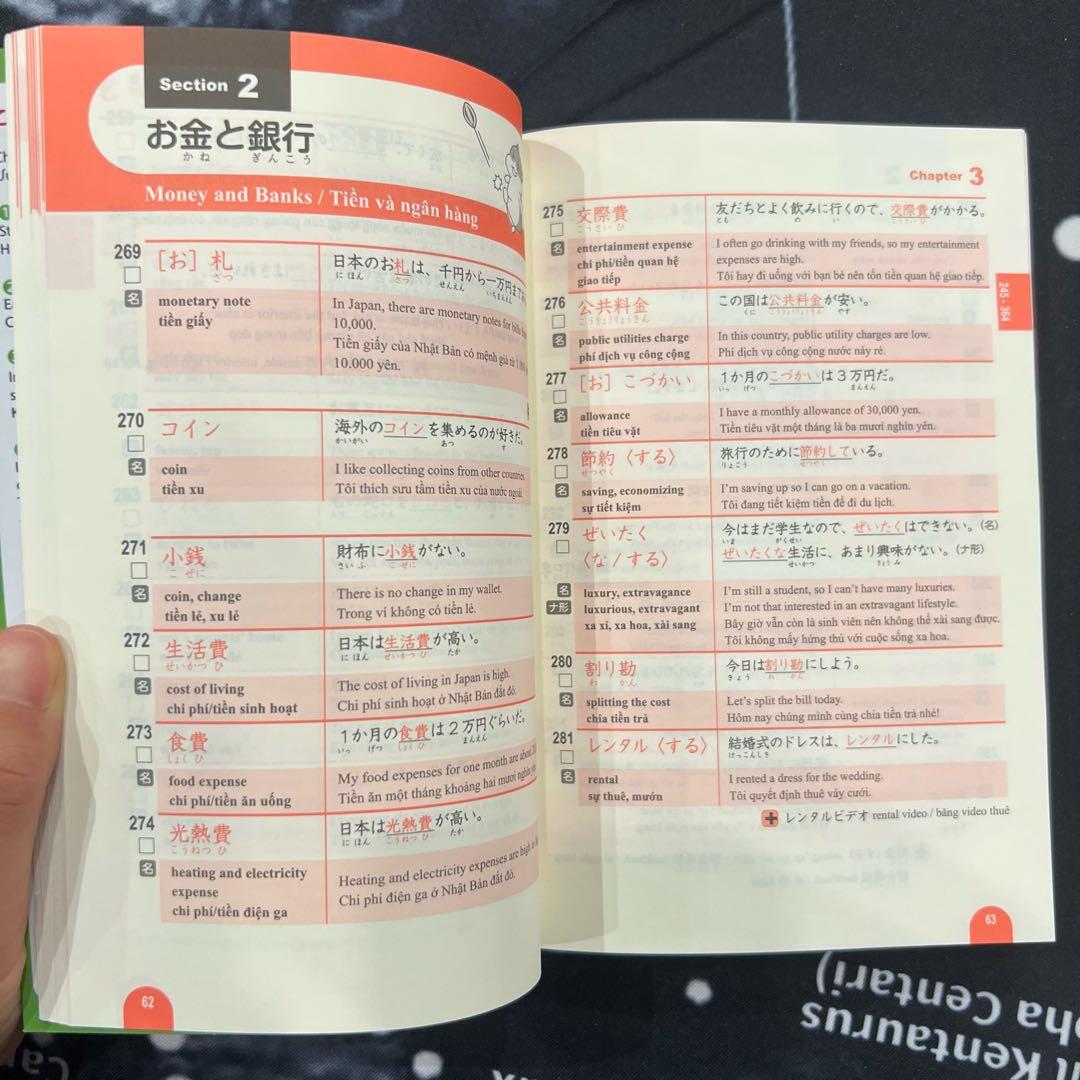 Section 2
お金と銀行
かね ぎんこう
Money and Banks / Tiền và ngân hàng
269
[お] 札
さつ
日本のお札は、千円から一万円まで
にほん さつ せんえん いちまんえん
名
monetary note
tiền giấy
In Japan, there are monetary notes for bills
10,000.
Tiền giấy của Nhật Bản có mệnh giá từ 1.000
10.000 yên.
270
コイン
海外のコインを集めるのが好きだ。
かいがい あつ す
名
coin
tiền xu
I like collecting coins from other countries.
Tôi thích sưu tầm tiền xu của nước ngoài.
271
小銭
こ ぜに
財布に小銭がない。
さいふ こ ぜに
名
coin, change
tiền lẻ, xu lẻ
There is no change in my wallet.
Trong ví không có tiền lẻ.
272
生活費
せいかつ ひ
日本は生活費が高い。
にほん せいかつ ひ たか
名
cost of living
chi phí/tiền sinh hoạt
The cost of living in Japan is high.
Chi phí sinh hoạt ở Nhật Bản đắt đỏ.
273
食費
しょく ひ
1か月の食費は2万円ぐらいだ。
いっ げつ しょく ひ まんえん
名
food expense
chi phí/tiền ăn uống
My food expenses for one month are about
Tiền ăn một tháng khoảng hai mươi nghìn
274
光熱費
こうねつ ひ
日本は光熱費が高い。
にほん こうねつ ひ たか
名
heating and electricity
expense
chi phí/tiền điện ga
Heating and electricity expenses are high
Chi phí điện ga ở Nhật Bản đắt đỏ.
62
Chapter 3
275
交際費
こうさい ひ
友だちとよく飲みに行くので、交際費がかかる。
とも の い こうさい ひ
名
entertainment expense
chi phí/tiền quan hệ
giao tiếp
I often go drinking with my friends, so my entertainment
expenses are high.
Tôi hay đi uống với bạn bè nên tốn tiền quan hệ giao tiếp.
276
公共料金
こうきょうりょうきん
この国は公共料金が安い。
くに こうきょうりょうきん やす
名
public utilities charge
phí dịch vụ công cộng
In this country, public utility charges are low.
Phí dịch vụ công cộng nước này rẻ.
277
[お] こづかい
1か月のこづかいは3万円だ。
いっ げつ まんえん
名
allowance
tiền tiêu vặt
I have a monthly allowance of 30,000 yen.
Tiền tiêu vặt một tháng là ba mươi nghìn yên.
278
節約〈する〉
せつやく
旅行のために節約している。
りょこう せつやく
名
saving, economizing
sự tiết kiệm
I'm saving up so I can go on a vacation.
Tôi đang tiết kiệm tiền để đi du lịch.
279
ぜいたく
〈な / する〉
今はまだ学生なので、ぜいたくはできない。(名)
いま がくせい
ぜいたくな生活に、あまり興味がない。(ナ形)
せいかつ きょうみ
名
ナ形
luxury, extravagance
luxurious, extravagant
xa xỉ, xa hoa, xài sang
I'm still a student, so I can't have many luxuries.
I'm not that interested in an extravagant lifestyle.
Bây giờ vẫn còn là sinh viên nên không thể xài sang được.
Tôi không mấy hứng thú với cuộc sống xa hoa.
280
割り勘
わ かん
今日は割り勘にしよう。
きょう わ かん
名
splitting the cost
chia tiền trả
Let's split the bill today.
Hôm nay chúng mình cùng chia tiền trả nhé!
281
レンタル〈する〉
結婚式のドレスは、レンタルにした。
けっこんしき
名
rental
sự thuê, mướn
I rented a dress for the wedding.
Tôi quyết định thuê váy cưới.
レンタルビデオ rental video / băng video thuê
245 - 364
63
Kentaurus
Centari)